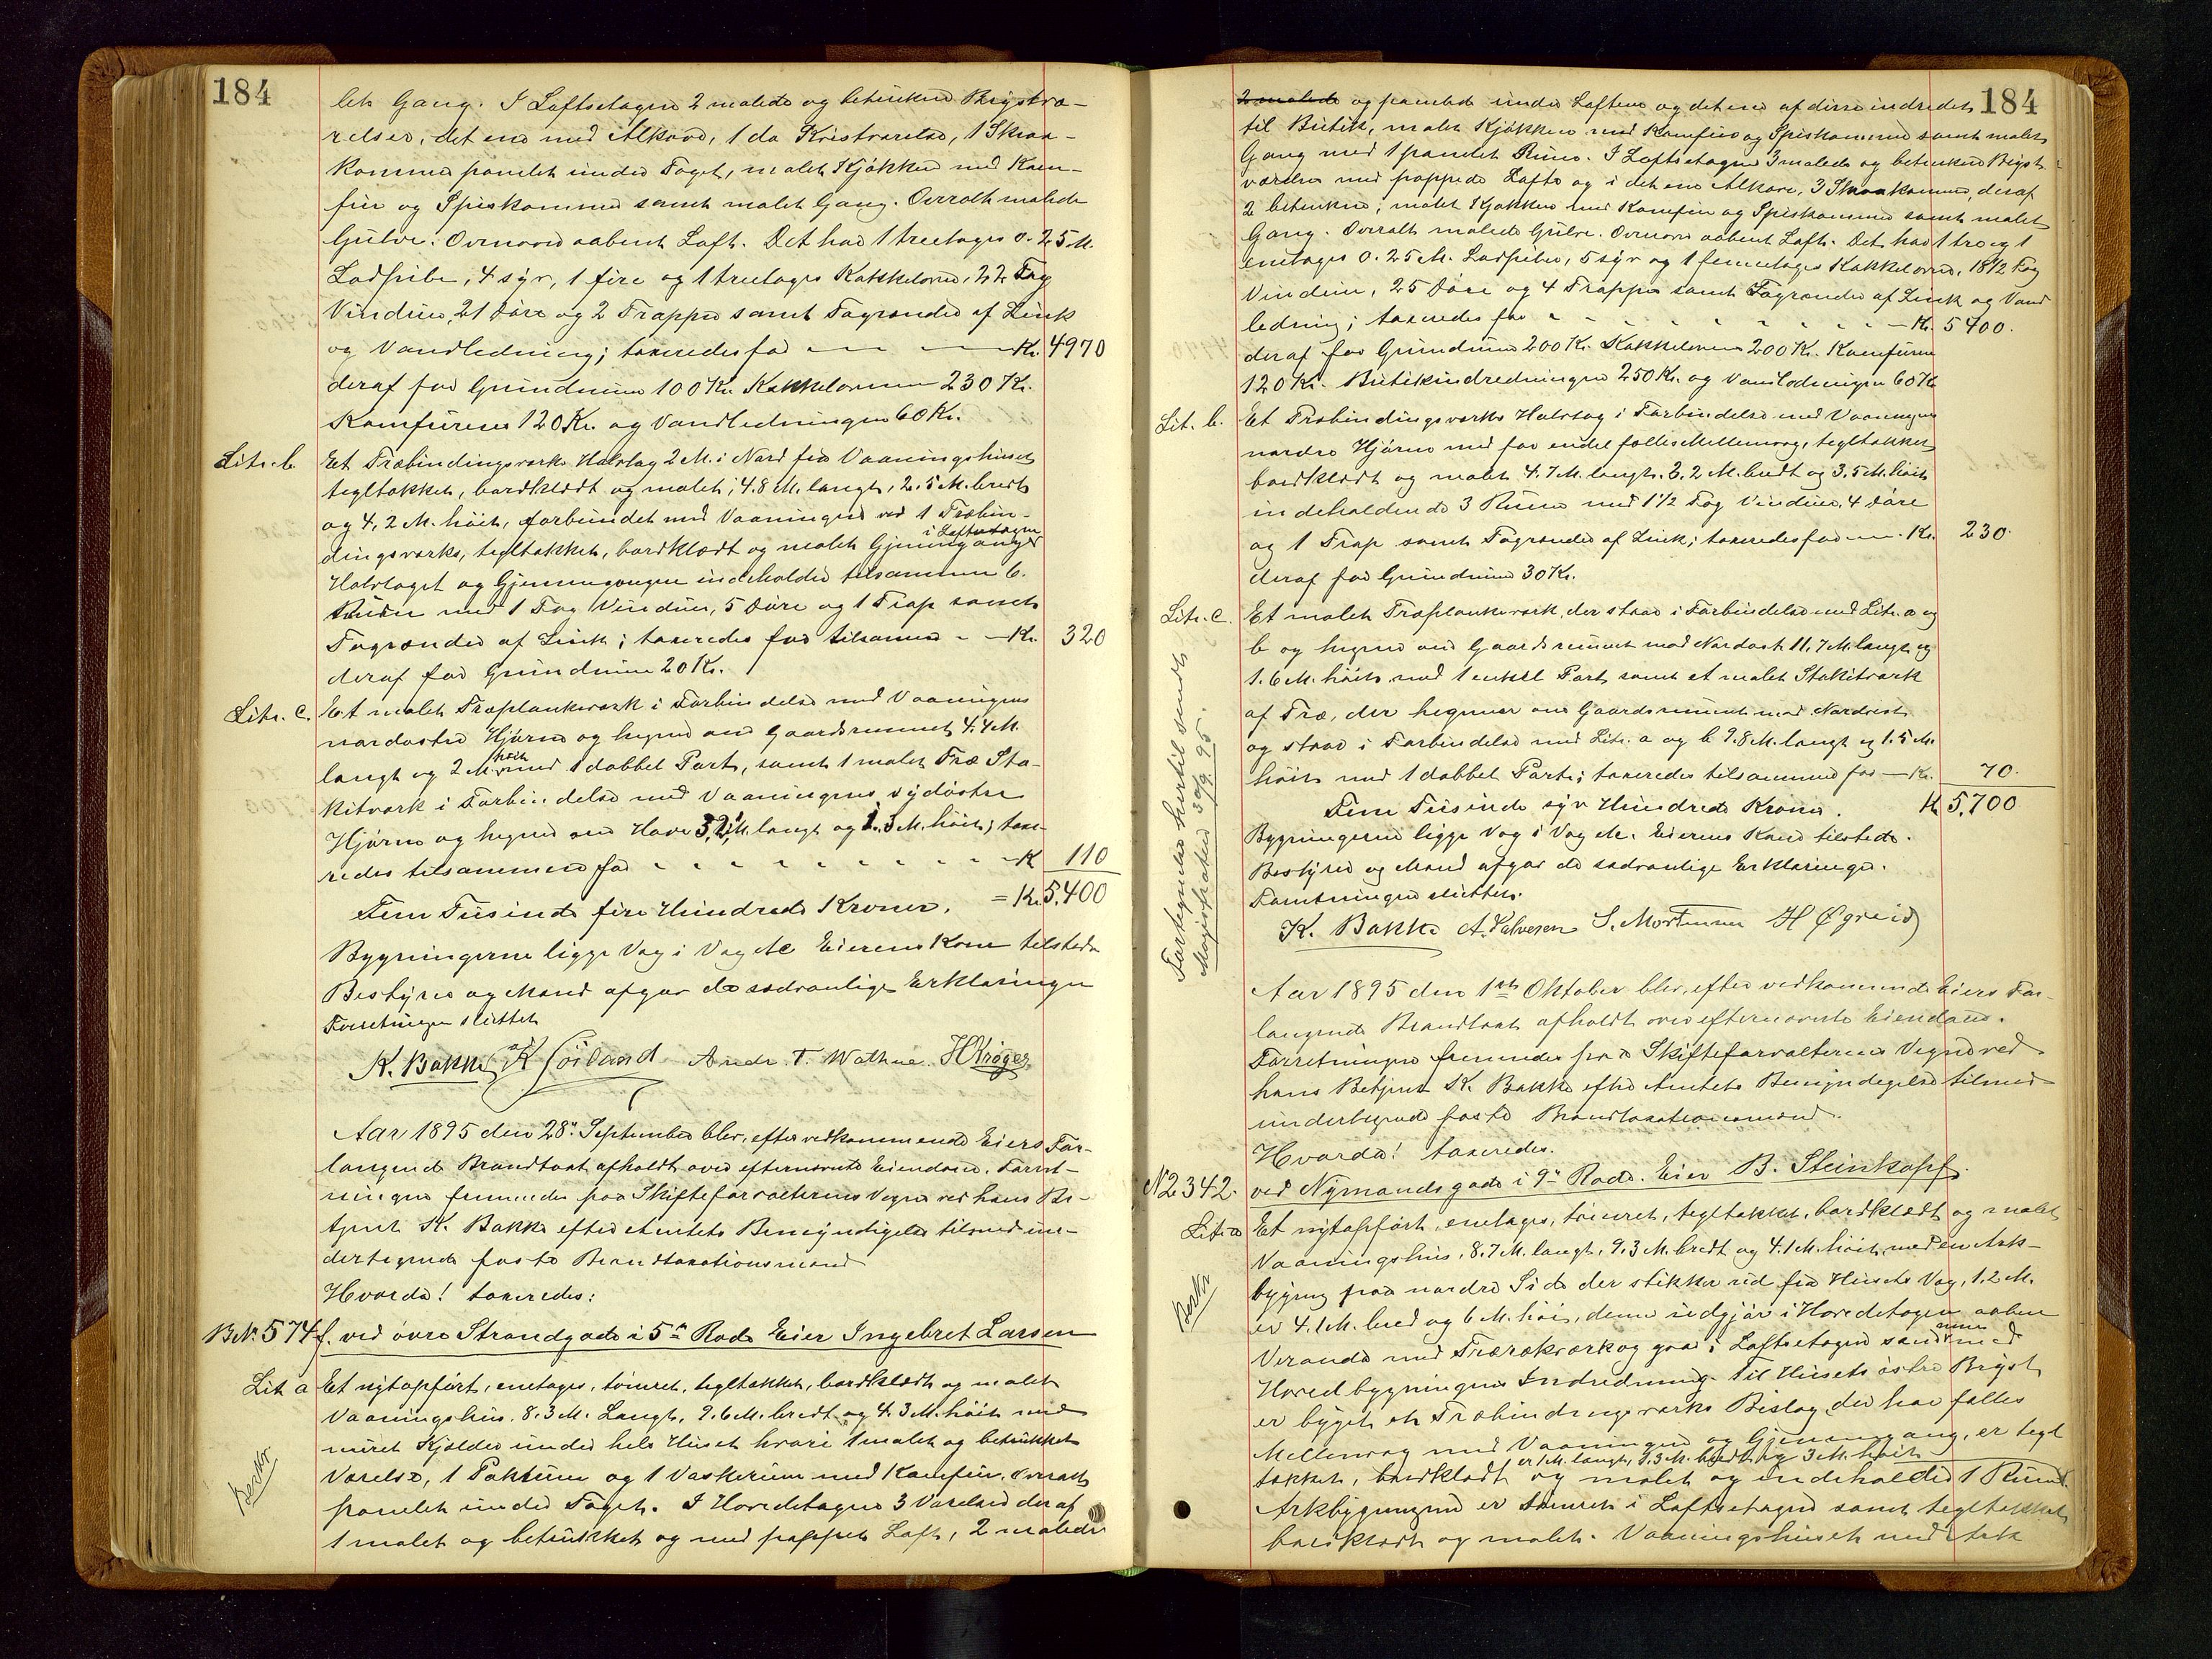 184
let Gang. I Loftsetagen 2 malede og betrukne Brystvæ-
relser, det ene med Alkove, 1 do Kvistværelse, 1 Skraa-
kammer panelet under Taget, malet Kjøkken med Kom-
fur og Spiskammer samt malet Gang. Overalt malede
Gulve. Ovenover aabent Loft. Det har 1 treetages o. 25 M.
Lodpibe, 4 syv, 1 fire og 1 treetages Kakkelovne, 22 Fag
Vinduer, 21 Døre og 2 Trapper samt Tagrender af Zink
og Vandledning; taxeredes for — — Kr. 4970
deraf for Grundmur 100 Kr. Kakkelovnene 230 Kr.
Komfurene 120 Kr. og Vandledningen 60 Kr.
Litr. b. Et Træbindingsværks Halvtag 2 M. i Nord fra Vaaningshuset
tegltækket, bordklædt og malet, 4.8 M. langt, 2.5 M. bredt
og 4,2 M. høit, forbundet med Vaaningen ved 1 Træbin-
i Loftsetagen
dingsværks, tegltækket, bordklædt og malet Gjennemgang
Halvtaget og Gjennemgangen indeholder tilsammen 6.
Rum med 1 Fag Vinduer, 5 Døre og 1 Trap samt
Tagrender af Zink; taxeredes for tilsammen - — Kr. 320
deraf for Grundmur 20 Kr.
Litr. C. Et malet Træplankeværk i Forbindelse med Vaaningens
nordøstre Hjørne og hegner om Gaardsrummet 4.4 M.
høit
langt og 2 M. med 1 dobbel Port, samt 1 malet Træ Sta-
kitværk i Forbindelse med Vaaningens sydøstre
Hjørne og hegner om Have 32, M. langt og 1.5 M. høit; taxe-
redes tilsammen for - - - - - K 110
Fem Tusinde fire Hundrede Kroner. = Kr. 5,400
Bygningerne ligge Væg i Væg etc Eierens Kone tilstede
Bestyrer og Mænd afgav de sædvanlige Erklæringer
Forretningen sluttet
K. Bakke K Göiland Andr. T. Wathne. H Krøger.
Aar 1895 den 28de September blev, efter vedkommende Eiers For-
langende Brandtaxt afholdt over efternævnte Eiendom. Forret-
ningen fremmedes paa Skifteforvalterens Vegne ved hans Be-
tjent K. Bakke efter Amtets Bemyndigelse tilmed un-
dertegnede faste Brandtaxationsmænd
Hvorda! taxeredes:
B.N. 574 f. ved øvre Strandgade i 5te Rode Eier Ingebret Larsen
Lit a Et nyopført, enetages, tømret, tegltækket, bordklædt og malet
Vaaningshus. 8.3 M. Langt, 9.6 M. bredt og 4.3 M. høit med
muret Kjælder under hele Huset hvori 1 malet og betrukket
Værelse, 1 Pakrum og 1 Vaskerum med Komfur. Overalt
panelet under Taget. I Hovedetagen 3 Værelser deraf
1 malet og betrukket og med pappet Loft, 2 malede
184
2 malede og panelede under Loftene og det ene af disse indredet
til Butik, malet Kjøkken med Komfur og Spiskammer samt malet
Gang med 1 panelet Rum. I Loftsetagen 3 malede og betrukne Bryst-
værelser med pappede Lofte og i det ene Alkove, 3 Skraakammer, deraf
2 betrukne, malet Kjøkken med Komfur og Spiskammer samt malet
Gang. Overalt malede Gulve. Ovenover aabent Loft. Det har 1 tre og 1
enetages o. 25 M. Lodpiber, 5 syv og 1 femetages Kakkelovne, 18 1/2 Fag
Vinduer, 25 Døre og 4 Trapper samt Tagrender af Zink og Vand
ledning; taxeredes for - - - - - Kr. 5400.
deraf for Grundmur 200 Kr. Kakkelovne 200 Kr. Komfurene
120 Kr. Butikindredningen 250 Kr. og Vandledningen 60 Kr
Lit. b. Et Træbindingsværks Halvtag i Forbindelse med Vaaningens
nordre Hjørne med for endel fælles Mellemvæg, tegltækket
bordklædt og malet 4.7 M. langt, 3,2 M. bredt og 3,5 M. høit
indeholdende 3 Rum med 1 1/2 Fag Vinduer, 4 Døre
og 1 Trap samt Tagrender af Zink; taxeredes for — Kr. 230.
deraf for Grundmur 30 Kr.
Litr. C. Et malet Træplankeværk, der staar i Forbindelse med Litr. a og
b og hegner om Gaardsrummet mod Nordost 11,7 M. langt og
1.6 M. høit med 1 enkel Port samt et malet Stakitværk
af Træ, der hegner om Gaardsrummet mod Nordvest
og staar i Forbindelse med Litr. a og b 9.8 M. langt og 1.5 M.
høit med 1 dobbel Port; taxeredes tilsammen for — Kr. 70.
Fem Tusinde syv Hundrede Kroner. Kr 5,700
Bygningerne ligge Væg i Væg etc. Eierens Kone tilstede.
Bestyrer og Mænd afgav de sædvanlige Erklæringer.
Forretningen sluttet.
K. Bakke A. Salvesen S. Mortensen H Øgreid
Fortegnelse hertil sendt
Magistraten 30/9. 95.
Aar 1895 den 1ste Oktober blev, efter vedkommende Eiers For-
langende Brandtaxt afholdt over efternævnte Eiendom.
Forretningen fremmedes paa Skifteforvalterens Vegne ved
hans Betjent K. Bakke efter Amtets Bemyndigelse tilmed
undertegnede faste Brandtaxationsmænd.
Hvorda! taxeredes.
N 2342. ved Nymandsgade i 9de Rode. Eier B. Steinkopf.
Lit a Et nyopført, enetages, tømret, tegltækket, bordklædt og malet
Vaaningshus, 8.7 M. langt, 9.3 M. bredt og 4.1 M. høit med en Ark-
bygning paa nordre Side der stikker ud fra Husets Væg, 1.2 M.
er 4.1 M. bred og 6 M. høi, denne udgjør i Hovedetagen aaben
Veranda med Trærækværk og gaar i Loftsetagen sammen med
Hovedbygningens Indredning. Til Husets østre Bryst
er bygget et Træbindingsværks Bislag, der har fælles
Mellemvæg med Vaaningen og Gjennemgang, er tegl
er 1 M. langt, 3.3 M. bredt og 3 M. høit
tækket, bordklædt og malet og indeholder 1 Rum.
Arkbygningen er tømret i Loftsetagen samt tegltækket
bordklædt og malet. Vaaningshuset med Ark